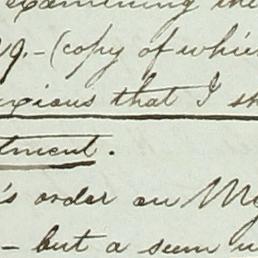 examining the
9.- (copy of whic
xious that I sh
tment.
's order on My
- but a seem u